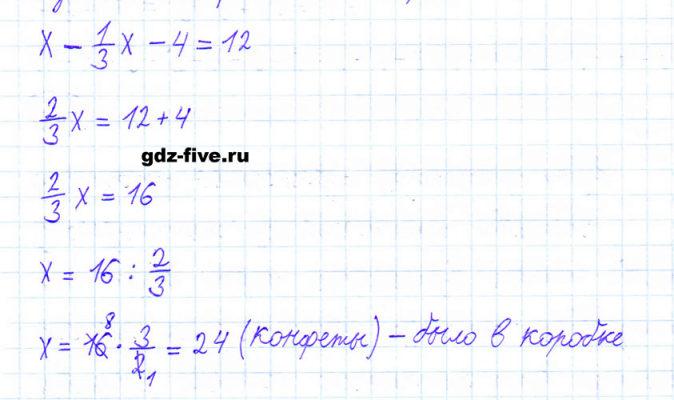 x - 1/3 x - 4 = 12
2/3 x = 12 + 4
gdz-five.ru
2/3 x = 16
x = 16 : 2/3
x = 16 8 · 3/2 1 = 24 (конфеты) - было в коробке